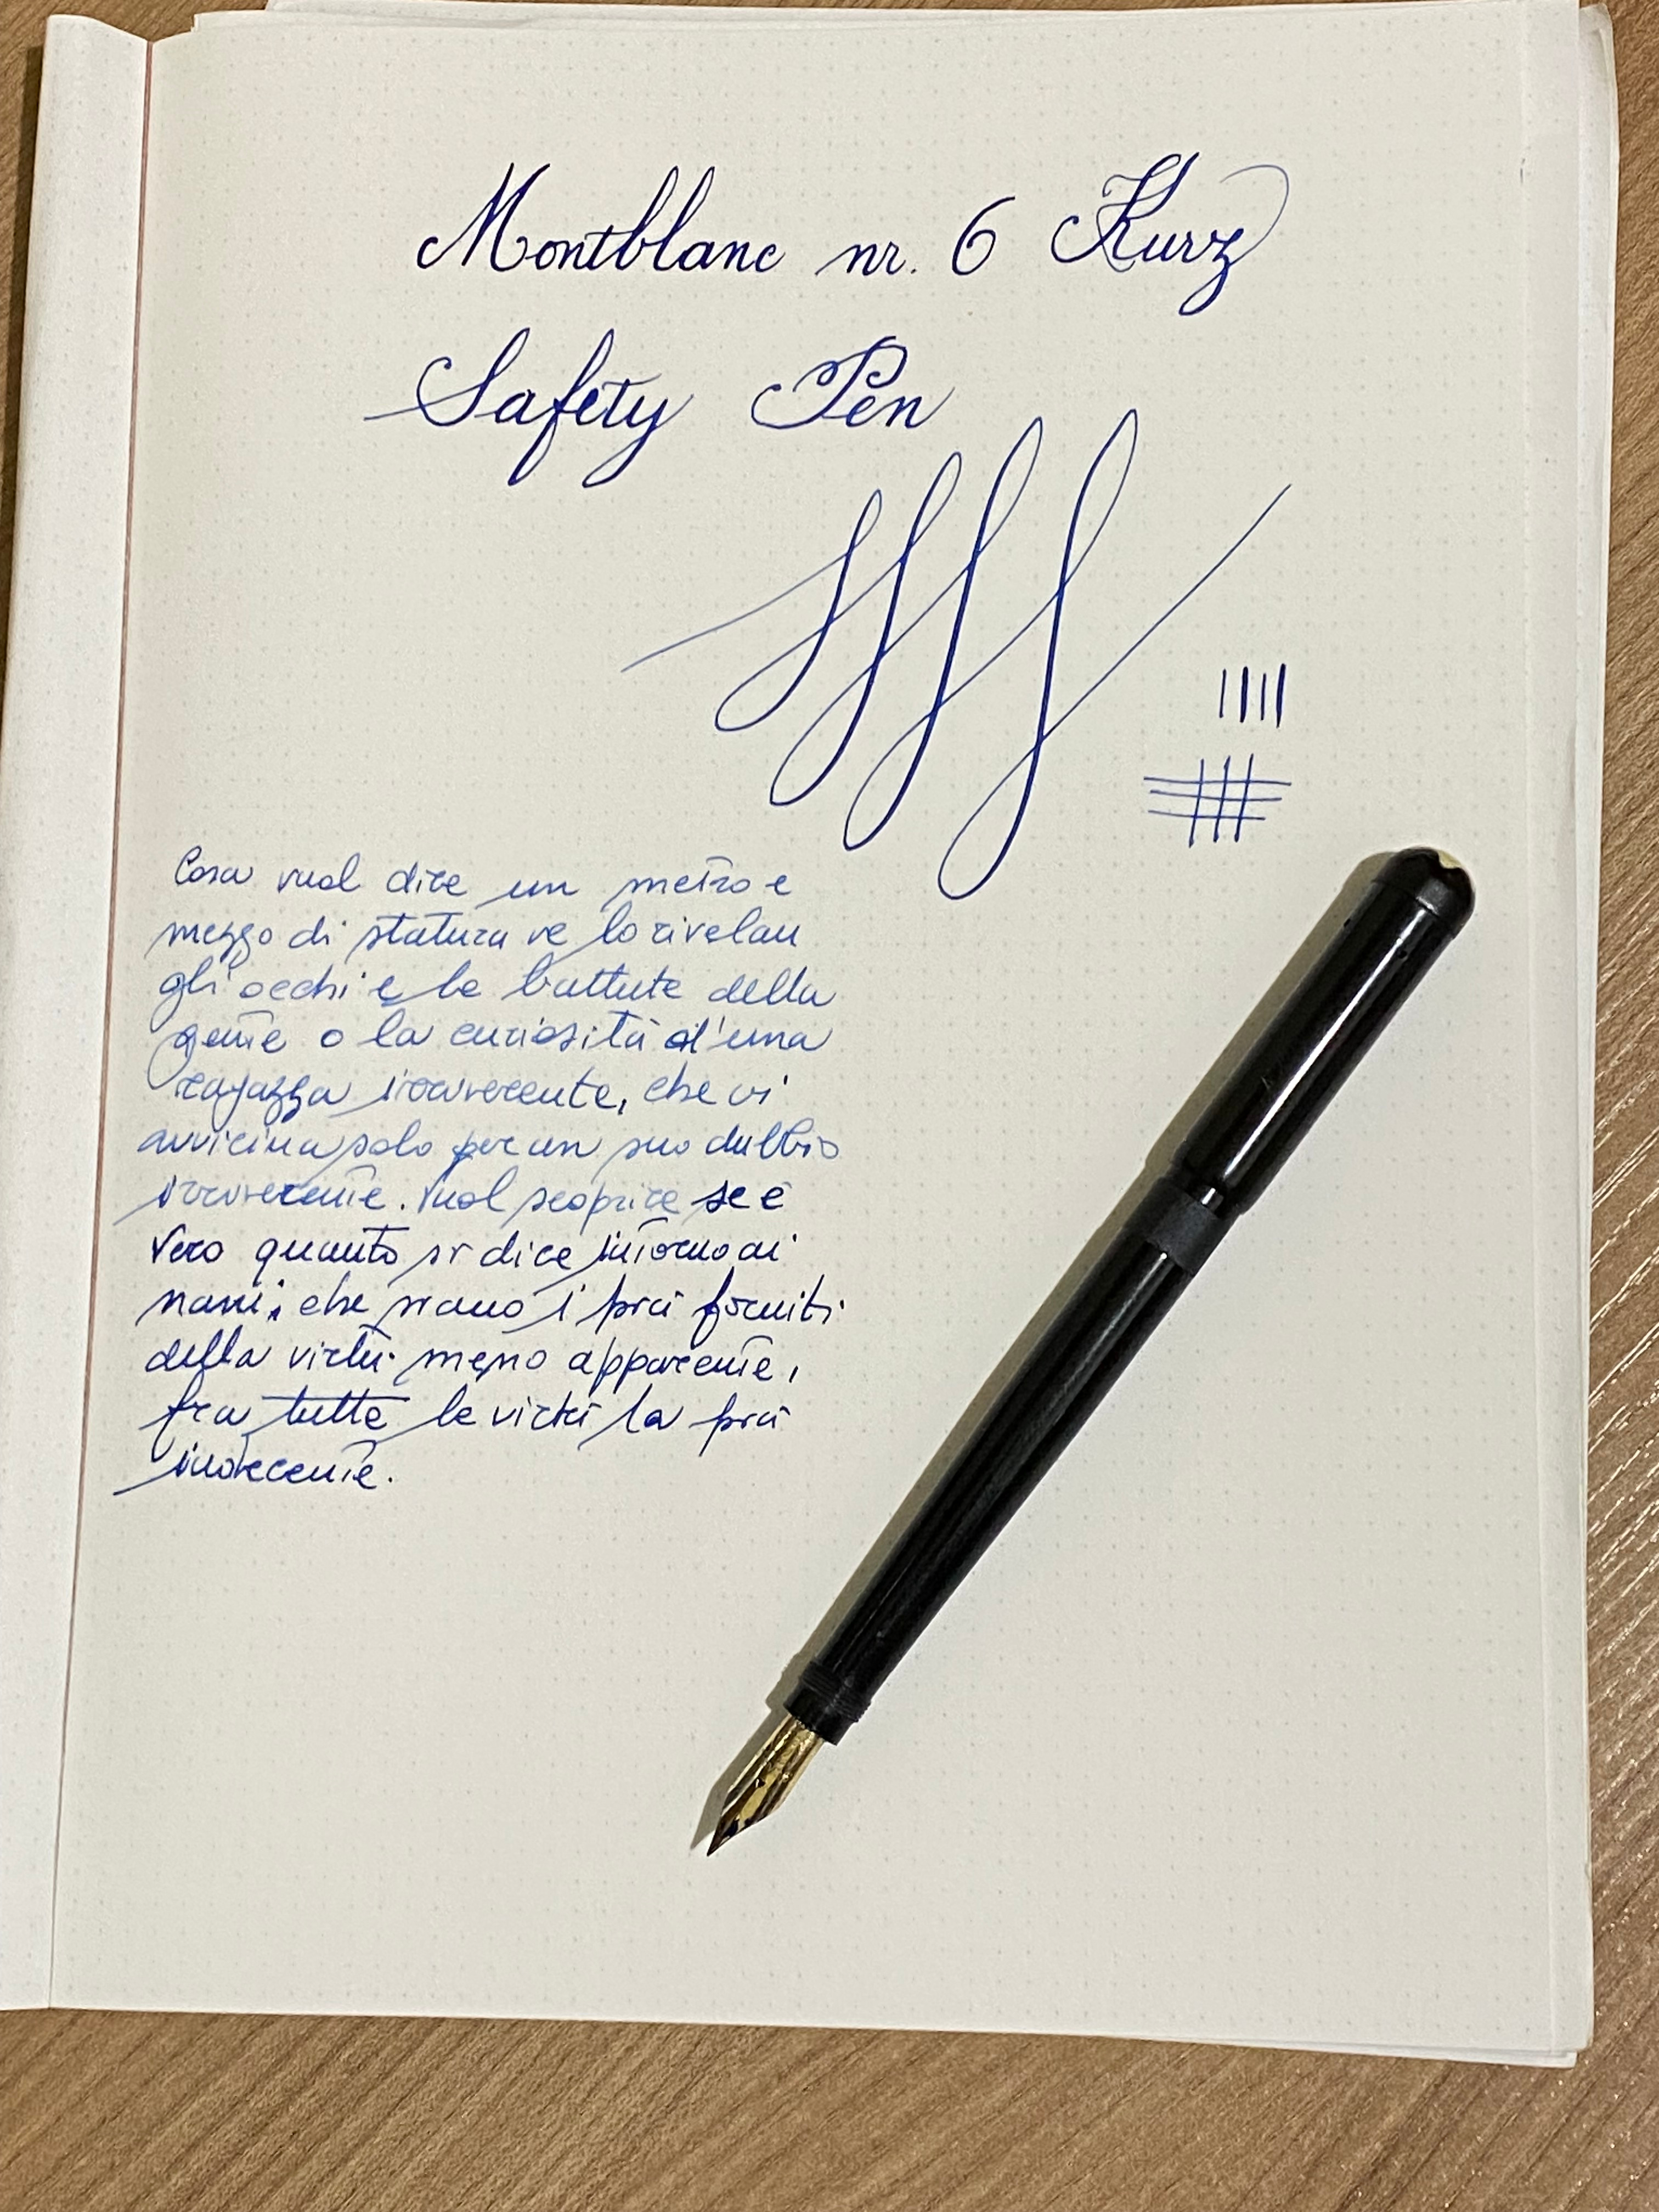 Montblanc nr. 6 Kurz
Safety Pen
Cosa vuol dire un metro e
mezzo di statura ve lo rivelan
gli occhi e le battute della
gente o la curiosità d'una
ragazza irriverente, che vi
avvicina solo per un suo dubbio
irriverente. Vuol scoprire se è
vero quanto si dice intorno ai
nani, che siano i più forniti
della virtù meno apparente,
fra tutte le virtù la più
indecente.